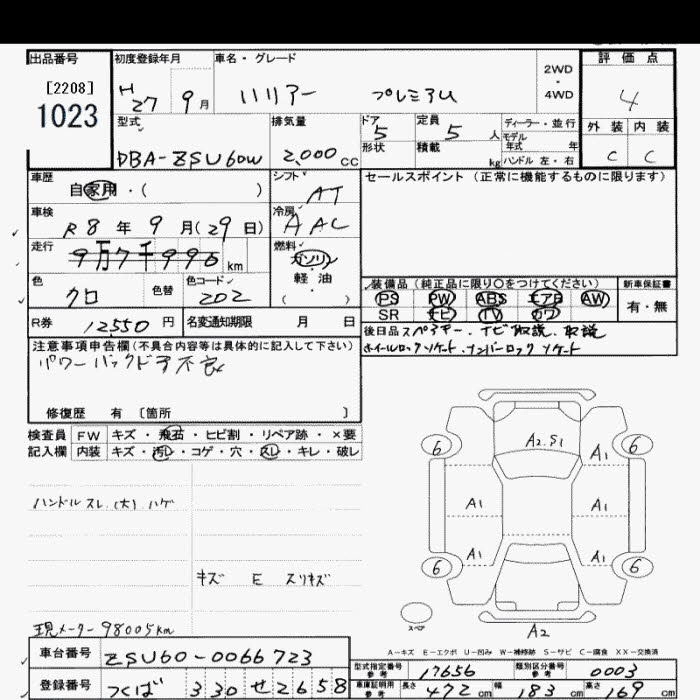 出品番号 初度登録年月 車名・グレード 2WD・4WD 評価点
[2208]
1023
H27 9月 ハリアー プレミアム 4
型式 排気量 ドア 定員 ディーラー・並行 外装 内装
DBA-ZSU60W 2,000cc 5 5人 モデル年式 年
形状 積載 kg ハンドル 左・右 C C
車歴 自家用・( ) シフト AT セールスポイント (正常に機能するものに限ります)
車検 R8年9月(29日) 冷房 AAC
走行 9万7千996km 燃料 ガソリン
軽・油
( )
色 クロ 色替 色コード 202
装備品(純正品に限り○をつけてください) 新車保証書
PS PW ABS エアB AW 有・無
SR ナビ TV カワ
R券 12,550円 名変通知期限 月 日
後日品 スペアキー、ナビ取説、取説
ホイルロックソケット、ナンバーロックソケット
注意事項申告欄(不具合内容等は具体的に記入して下さい)
パワーバックドア不良
修復歴 有 〔箇所 〕
検査員 FW キズ・飛石・ヒビ割・リペア跡・×要
記入欄 内装 キズ・汚レ・コゲ・穴・スレ・キレ・破レ
ハンドルスレ(大)ハゲ
キズ E スリキズ
現メーター98005km
6 A2.S1 6
A1
A1 A1
A1 A1
6 6
スペア
A2
A-キズ E-エクボ U-凹み W-補修跡 S-サビ C-腐食 XX-交換済
車台番号 ZSU60-0066723
型式指定番号 参考 17656 類別区分番号 参考 0003
登録番号 つくば 330 せ 2658
車庫証明用 参考 長さ 472cm 幅 183cm 高さ 169cm